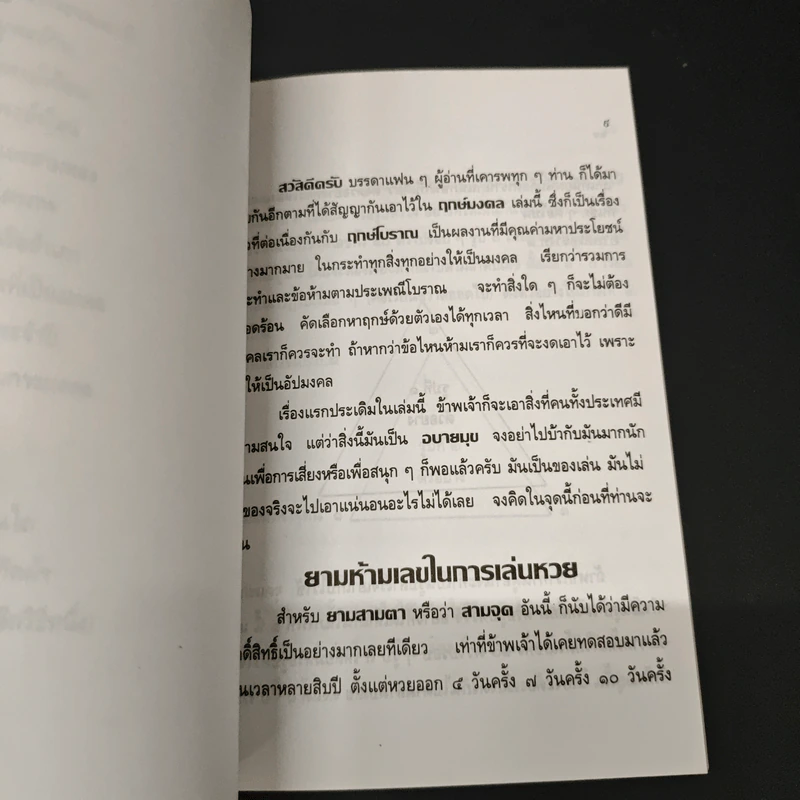 ๕
สวัสดีครับ บรรดาแฟน ๆ ผู้อ่านที่เคารพทุก ๆ ท่าน ก็ได้มา
กันอีกตามที่ได้สัญญากันเอาไว้ใน ฤกษ์มงคล เล่มนี้ ซึ่งก็เป็นเรื่อง
ที่ต่อเนื่องกันกับ ฤกษ์โบราณ เป็นผลงานที่มีคุณค่ามหาประโยชน์
างมากมาย ในกระทำทุกสิ่งทุกอย่างให้เป็นมงคล เรียกว่ารวมการ
ะทำและข้อห้ามตามประเพณีโบราณ จะทำสิ่งใด ๆ ก็จะไม่ต้อง
อดร้อน คัดเลือกหาฤกษ์ด้วยตัวเองได้ทุกเวลา สิ่งไหนที่บอกว่าดีมี
คลเราก็ควรจะทำ ถ้าหากว่าข้อไหนห้ามเราก็ควรที่จะงดเอาไว้ เพราะ
ให้เป็นอัปมงคล
เรื่องแรกประเดิมในเล่มนี้ ข้าพเจ้าก็จะเอาสิ่งที่คนทั้งประเทศมี
ามสนใจ แต่ว่าสิ่งนี้มันเป็น อบายมุข จงอย่าไปบ้ากับมันมากนัก
นเพื่อการเสี่ยงหรือเพื่อสนุก ๆ ก็พอแล้วครับ มันเป็นของเล่น มันไม่
ของจริงจะไปเอาแน่นอนอะไรไม่ได้เลย จงคิดในจุดนี้ก่อนที่ท่านจะ
น
ยามห้ามเลขในการเล่นหวย
สำหรับ ยามสามตา หรือว่า สามจุด อันนี้ ก็นับได้ว่ามีความ
ดิ์สิทธิ์เป็นอย่างมากเลยทีเดียว เท่าที่ข้าพเจ้าได้เคยทดสอบมาแล้ว
นเวลาหลายสิบปี ตั้งแต่หวยออก ๕ วันครั้ง ๗ วันครั้ง ๑๐ วันครั้ง